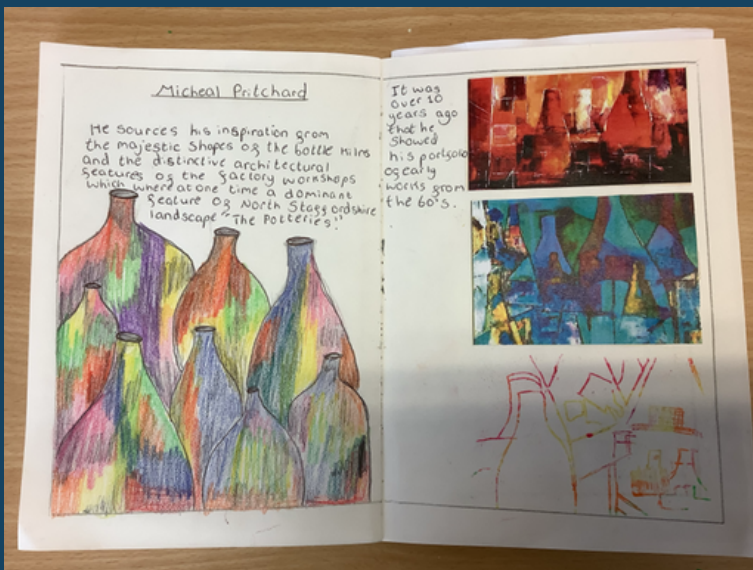 Micheal Pritchard
He sources his inspiration from
the majestic shapes of the bottle kilns
and the distinctive architectural
features of the factory workshops
which where at one time a dominant
feature of North Staffordshire
landscape "The Potteries."
It was
over 10
years ago
that he
showed
his portfolio
of early
works from
the 60's.